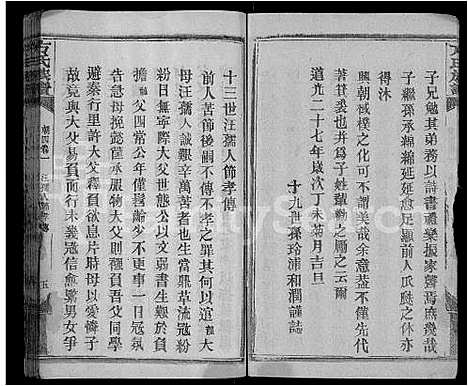 子兄勉其弟務以詩書禮樂振家聲焉庶幾哉
子繼孫承綿綿延延愈長前人瓜瓞之休亦
得沐
興朝棫樸之化不可謂不美哉余意蓋不僅先代
箕裘也并爲子姓輩勸之屬之云爾
道光二十七年歲次丁未菊月吉旦
十九世孫玲浦和潤謹誌
十三世汪孺人節孝傳
前人苦節後嗣不傳不孝之罪其何以逭
母汪孺人誠艱辛萬苦者也生當
長無寧際大父忠公以文弱書生艱於負
擔 父四常公年僅髫齡少不更事一日寇氛
告急母挽籃携 承服物大父則
避秦行里許大父釋負欲息片時母以愛憐子
故竟與大父易負而行未幾冠信愈驚男女爭
方氏族譜
五